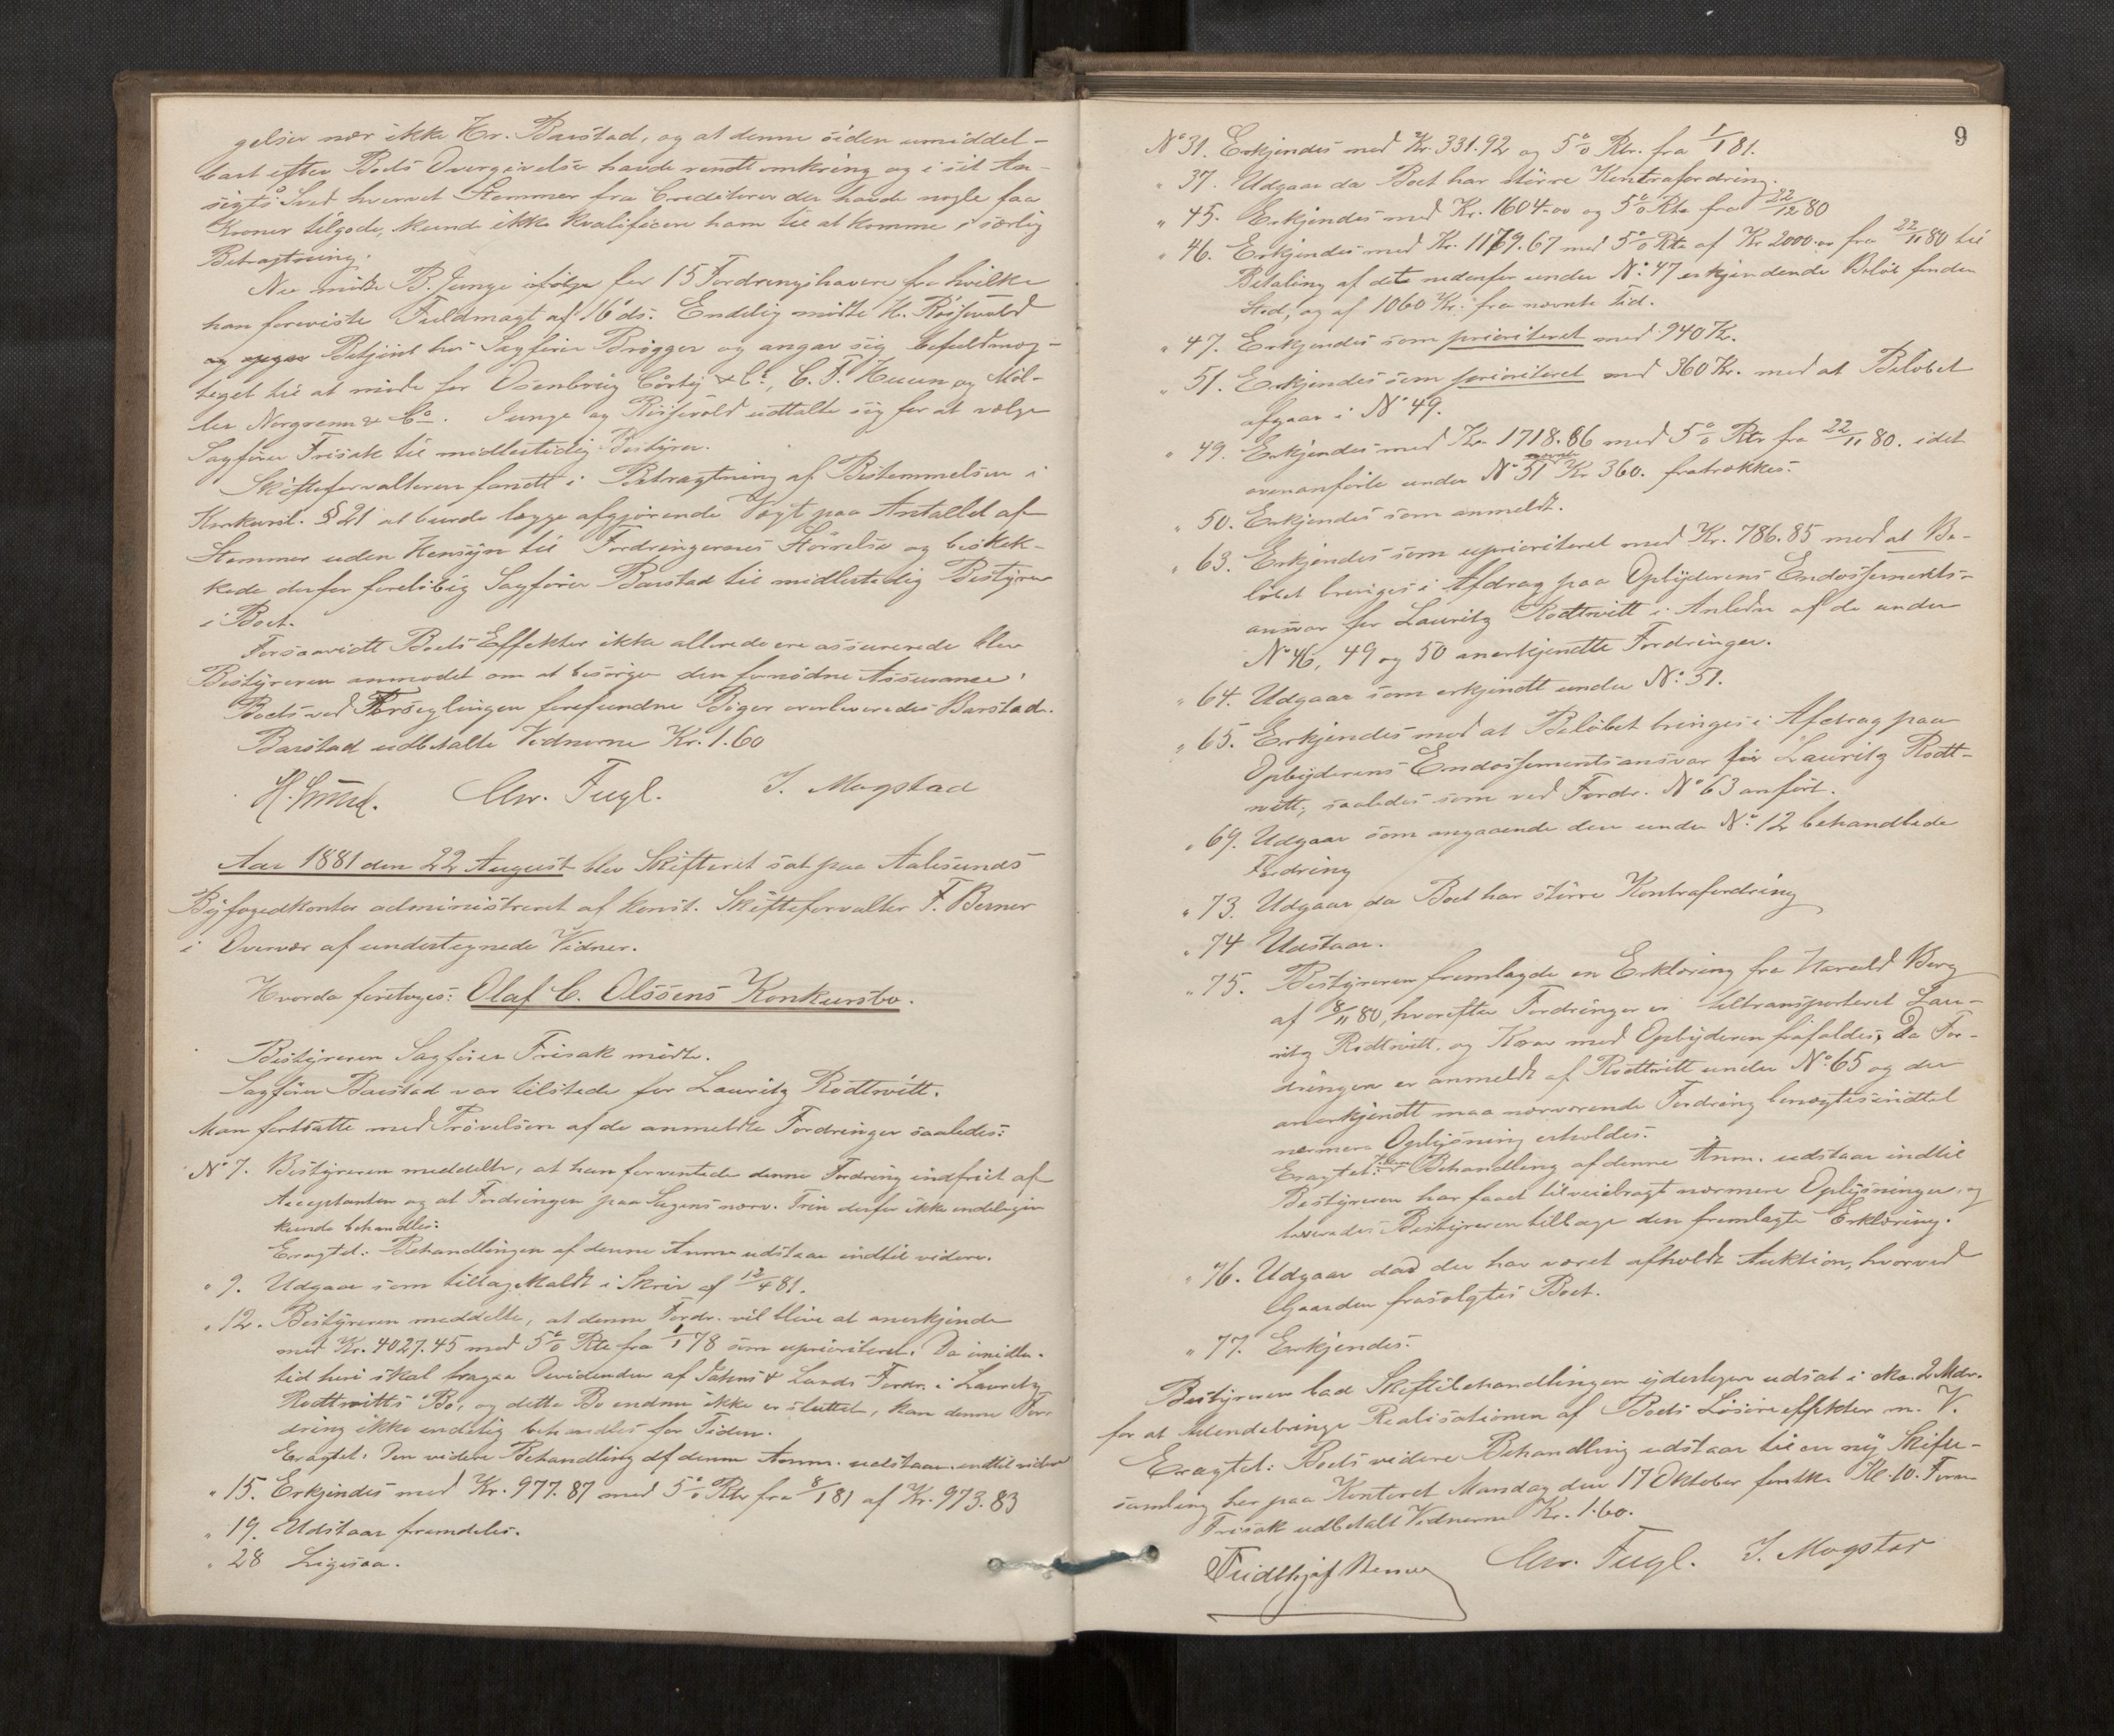 gelser nær ikke Hr. Barstad, og at denne siden umiddel-
bart efter Boets Overgivelse havde rendt omkring og i sit An-
sigts Sved hvervet Stemmer fra Creditorer der havde nogle faa
Kroner tilgode, kunde ikke kvalificere ham til at komme i særlig
Betragtning.
Nu mødte B. Junge ifølge for 15 Fordringshavere fra hvilke
han foreviste Fuldmagt af 16 ds. Endelig mødte K. Röisevold
Betjent hos Sagfører Brögger og angav sig befuldmæg-
tiget til at møde for Osenbrüg Cörtij & Co, C. F. Huun og Möl-
ler Norgrenn & Co. Junge og Röisevold udtalte sig for at vælge
Sagfører Frisak til midlertidig Bestyrer.
Skifteforvalteren fandt i Betragtning af Bestemmelsen i
Konkursl. § 21 at burde lægge afgjørende Vægt paa Antallet af
Stemmer uden Hensyn til Fordringernes Størrelse og beskik-
kede derfor foreløbig Sagfører Barstad til midlertidig Bestyrer
i Boet.
Forsaavidt Boets Effekter ikke allerede ere assurerede blev
Bestyreren anmodet om at besørge den fornødne Assurance.
Boets ved Forseglingen forefundne Bøger overleveredes Barstad.
Barstad udbetalte Vidnerne Kr. 1.60
Chr. Fugl. J. Magstad
Aar 1881 den 22 August blev Skifteret sat paa Aalesunds
Byfogedkontor administreret af konst. Skifteforvalter F. Berner
i Overvær af undertegnede Vidner.
Hvorda foretoges: Olaf C. Olssens Konkursbo.
Bestyreren Sagfører Frisak mødte.
Sagfører Barstad var tilstede for Lauritz Rodtwitt.
Man fortsatte med Prøvelsen af de anmeldte Fordringer saaledes:
No 7. Bestyreren meddelte, at han forventede denne Fordring indfriet af
Acceptanten og at Fordringen paa Sagens nærv. Trin derfor ikke endeligen
kunde behandles.
Eragtet: Behandlingen af denne Anm. udstaar indtil videre.
" 9. Udgaar som tilbagekaldt i Skriv af 12/4 81.
" 12. Bestyreren meddelte, at denne Fordr. vil blive at anerkjende
med Kr. 4027.45 med 5% Rte fra 1/1 78 som uprioriteret. Da imidler-
tid heri skal fragaa Dividenden af Jahns & Lunds Fordr. i Lauritz
Rodtwitts Bo, og dette Bo endnu ikke er sluttet, kan denne For-
dring ikke endelig behandles for Tiden.
Eragtet: Den videre Behandling af denne Anm. udstaar indtil videre
" 15. Erkjendes med Kr. 977.87 med 5% Rte fra 8/1 81 af Kr. 973.83
" 19. Udstaar fremdeles.
" 28 Ligesaa.
9
No 31. Erkjendes med Kr. 331.92 og 5% Rtr. fra 1/1 81.
" 37. Udgaar da Boet har större Kontrafordring.
" 45. Erkjendes med Kr. 1604.00 og 5% Rte fra 22/12 80
" 46. Erkjendes med Kr. 1169.67 med 5% Rte af Kr 2000.00 fra 22/11 80 til
Betaling af det nedenfor under No. 47 erkjendende Beløb finder
Sted, og af 1060 Kr. fra nævnte Tid.
" 47. Erkjendes som prioriteret med 940 Kr.
" 51. Erkjendes som prioriteret med 360 Kr. med at Beløbet
afgaar i No 49.
" 49. Erkjendes med Kr. 1718.86 med 5% Rte fra 22/11 80. idet
ovenanførte under No 51 nævnte Kr 360. fratrækkes.
" 50. Erkjendes som anmeldt.
" 63. Erkjendes som uprioriteret med Kr. 786.85 med at Be-
løbet bringes i Afdrag paa Opbyderens Endossements-
ansvar for Lauritz Rodtwitt i Anledn af de under
No 46, 49 og 50 anerkjendte Fordringer.
" 64. Udgaar som erkjendt under No. 51.
" 65. Erkjendes med at Beløbet bringes i Afdrag paa
Opbyderens Endossementsansvar for Lauritz Rodt-
witt, saaledes som ved Fordr. No 63 anført.
" 69. Udgaar som angaaende den under No. 12 behandlede
Fordring
" 73. Udgaar da Boet har större Kontrafordring
" 74 Udstaar.
" 75. Bestyreren fremlagde en Erklæring fra Harald Berg
af 8/11 80, hvorefter Fordringen er tiltransporteret Lau-
ritz Rodtwitt, og Krav mod Opbyderen frafaldes; Da For-
dringen er anmeldt af Rodtwitt under No. 65 og der
anerkjendt maa nærværende Fordring benægtes indtil
nærmere Oplysning erholdes.
Eragtet: Videre Behandling af denne Anm. udstaar indtil
Bestyreren har faaet tilveiebragt nærmere Oplysninger, og
leveredes Bestyreren tilbage den fremlagte Erklæring.
" 76. Udgaar da der har været afholdt Auktion, hvorved
Gaarden frasolgtes Boet.
" 77. Erkjendes.
Bestyreren bad Skiftebehandlingen yderligere udsat i cka. 2 Mdr.
for at tilendebringe Realisationen af Boets Løsøreeffekter m. V.
Eragtet: Boets videre Behandling udstaar til en ny Skifte-
samling her paa Kontoret Mandag den 17 Oktober førstk. Kl. 10. Form
Frisak udbetalt Vidnerne Kr. 1.60.
Fridthjof Berner Chr. Fugl. J. Magstad